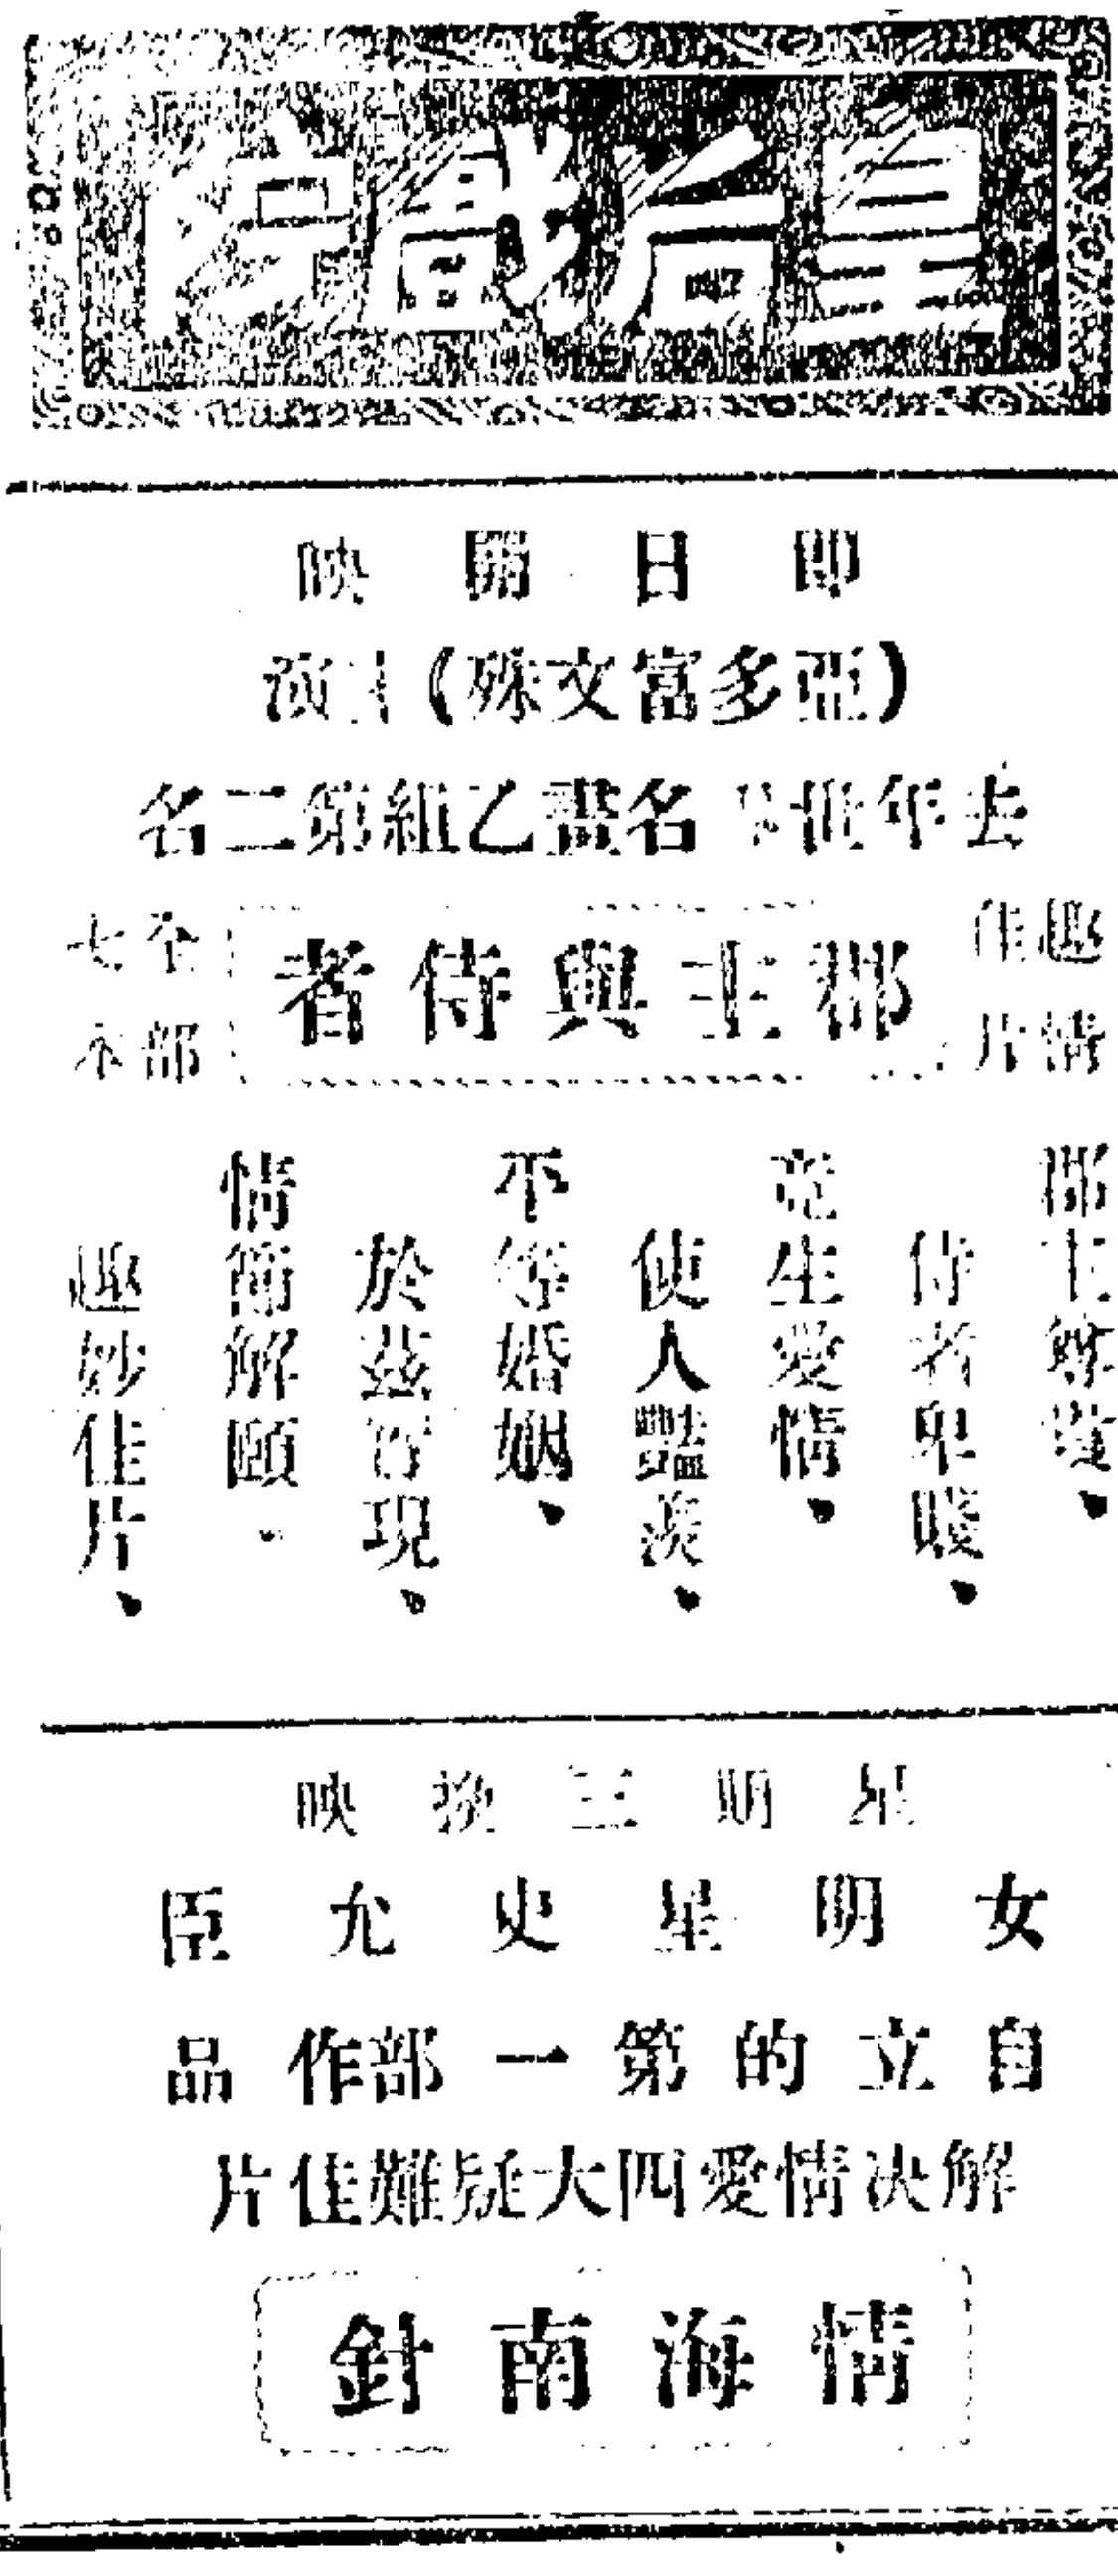 皇后戲院
即日開映
(亞多富文殊)主演
去年世界名畫乙組第二名
趣情
佳片
郡主與侍者
全部
七本
郡主尊貴、
侍者卑賤、
竟生愛情、
使人豔羨、
不等婚姻、
於茲實現、
情節解頤、
趣妙佳片、
星期三換映
女明星史允臣
自立的第一部作品
解決情愛四大疑難佳片
情海南針